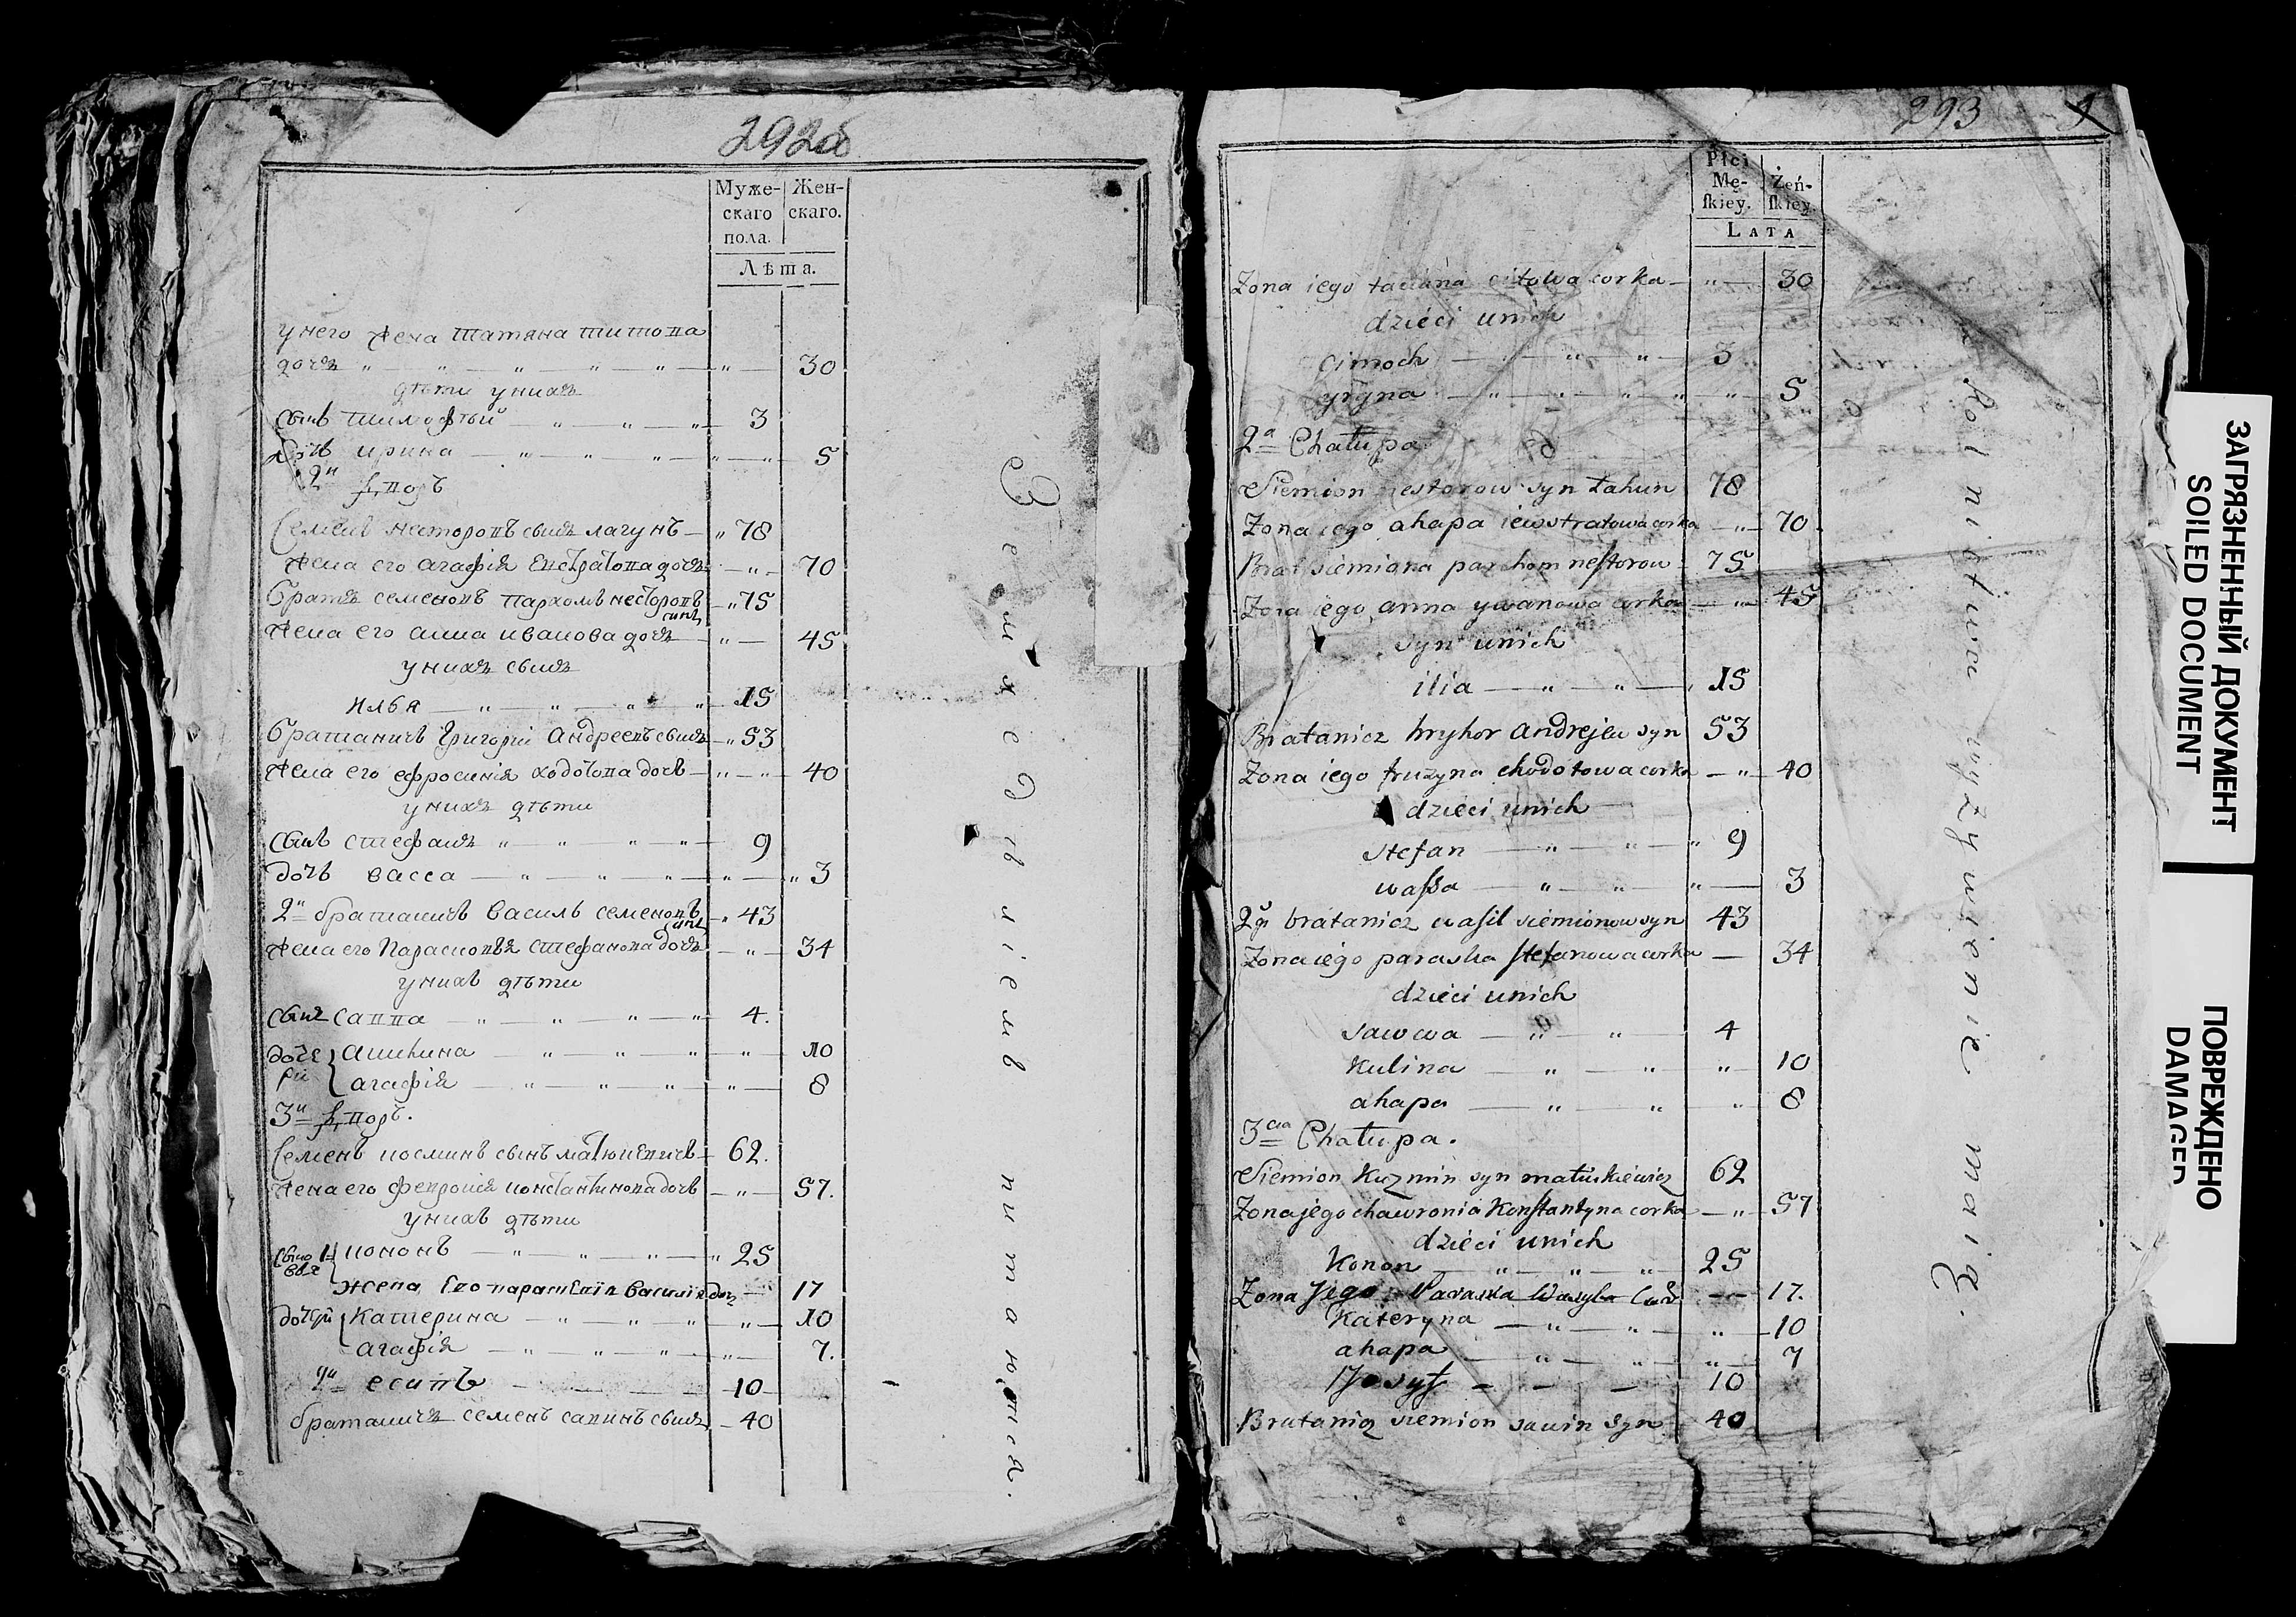 292об
Муже-
скаго
пола.
Жен-
скаго.
Лѣта.
унего жена татяна титова
дочь " " " " " " 30
дѣти унихъ
сынъ тимофѣй " " " 3
дочь ирина " " " " " 5
2й дворъ
Семенъ несторовъ сынъ лагунъ " 78
жена его агафія Евстратова дочь " 70
братъ семеновъ пархомъ несторовъ сынъ " 75
жена его анна иванова дочь " 45
унихъ сынъ
илья " " " " 15
братаничъ григорій андреевъ сынъ " 53
жена его ефросинія ходотова дочь " " 40
унихъ дѣти
сынъ стефанъ " " " " 9
дочь васса " " " " " 3
2й братаничъ василь семеновъ сынъ " 43
жена его Парасковья стефанова дочь " 34
унихъ дѣти
сынъ савва " " " " 4.
доче
ри
акилина " " " " 10
агафія " " " " 8
3й дворъ.
Семенъ косминъ сынъ матюкевичъ 62.
жена его февронія константинова дочь " 57.
унихъ дѣти
сыно
вья
1й кононъ " " " " 25
жена его параскевія василія дочь " 17
дочери
катерина " " " " 10
агафія " " " " 7.
2й есипъ 10
братаничъ семенъ савинъ сынъ 40
Земледѣліемъ питаются.
293
Płci
Mę-
ſkiey.
Żeń-
ſkiey.
Lata
Zona iego taciana citowa corka " 30
dzieci unich
Cimoch " " 3
yryna " " " " " 5
2a Chałupa
Siemion nestorow syn Łahun 78
Zona iego ahapa iewstratowa corka " 70
Brat siemiona parchom neſtorow 75
Zona iego anna ywanowa corka " 45
syn unich
ilia " " 15
Bratanicz hryhor andrejew syn 53
Zona iego fruzyna chodotowa corka " 40
dzieci unich
stefan " " " 9
waſsa " " " 3
2gi bratanicz waſil siemionow syn 43
Zona iego paraska ſtefanowa corka 34
dzieci unich
sawwa " " 4
Kulina " " " 10
ahapa " " " 8
3cia Chałupa.
Siemion Kuzmin syn matiukiewicz 62
Zona jego chawronia Konſtantyna corka " 57
dzieci unich
Konon " " " 25
Zona Jego Paraska Wasyla Cor 17.
Kateryna " " " 10
ahapa " " " 7
Josyf 10
Bratanicz siemion sawin syn 40
Rolnictwa wyżywienie maią.
ЗАГРЯЗНЕННЫЙ ДОКУМЕНТ
SOILED DOCUMENT
ПОВРЕЖДЕНО
DAMAGED